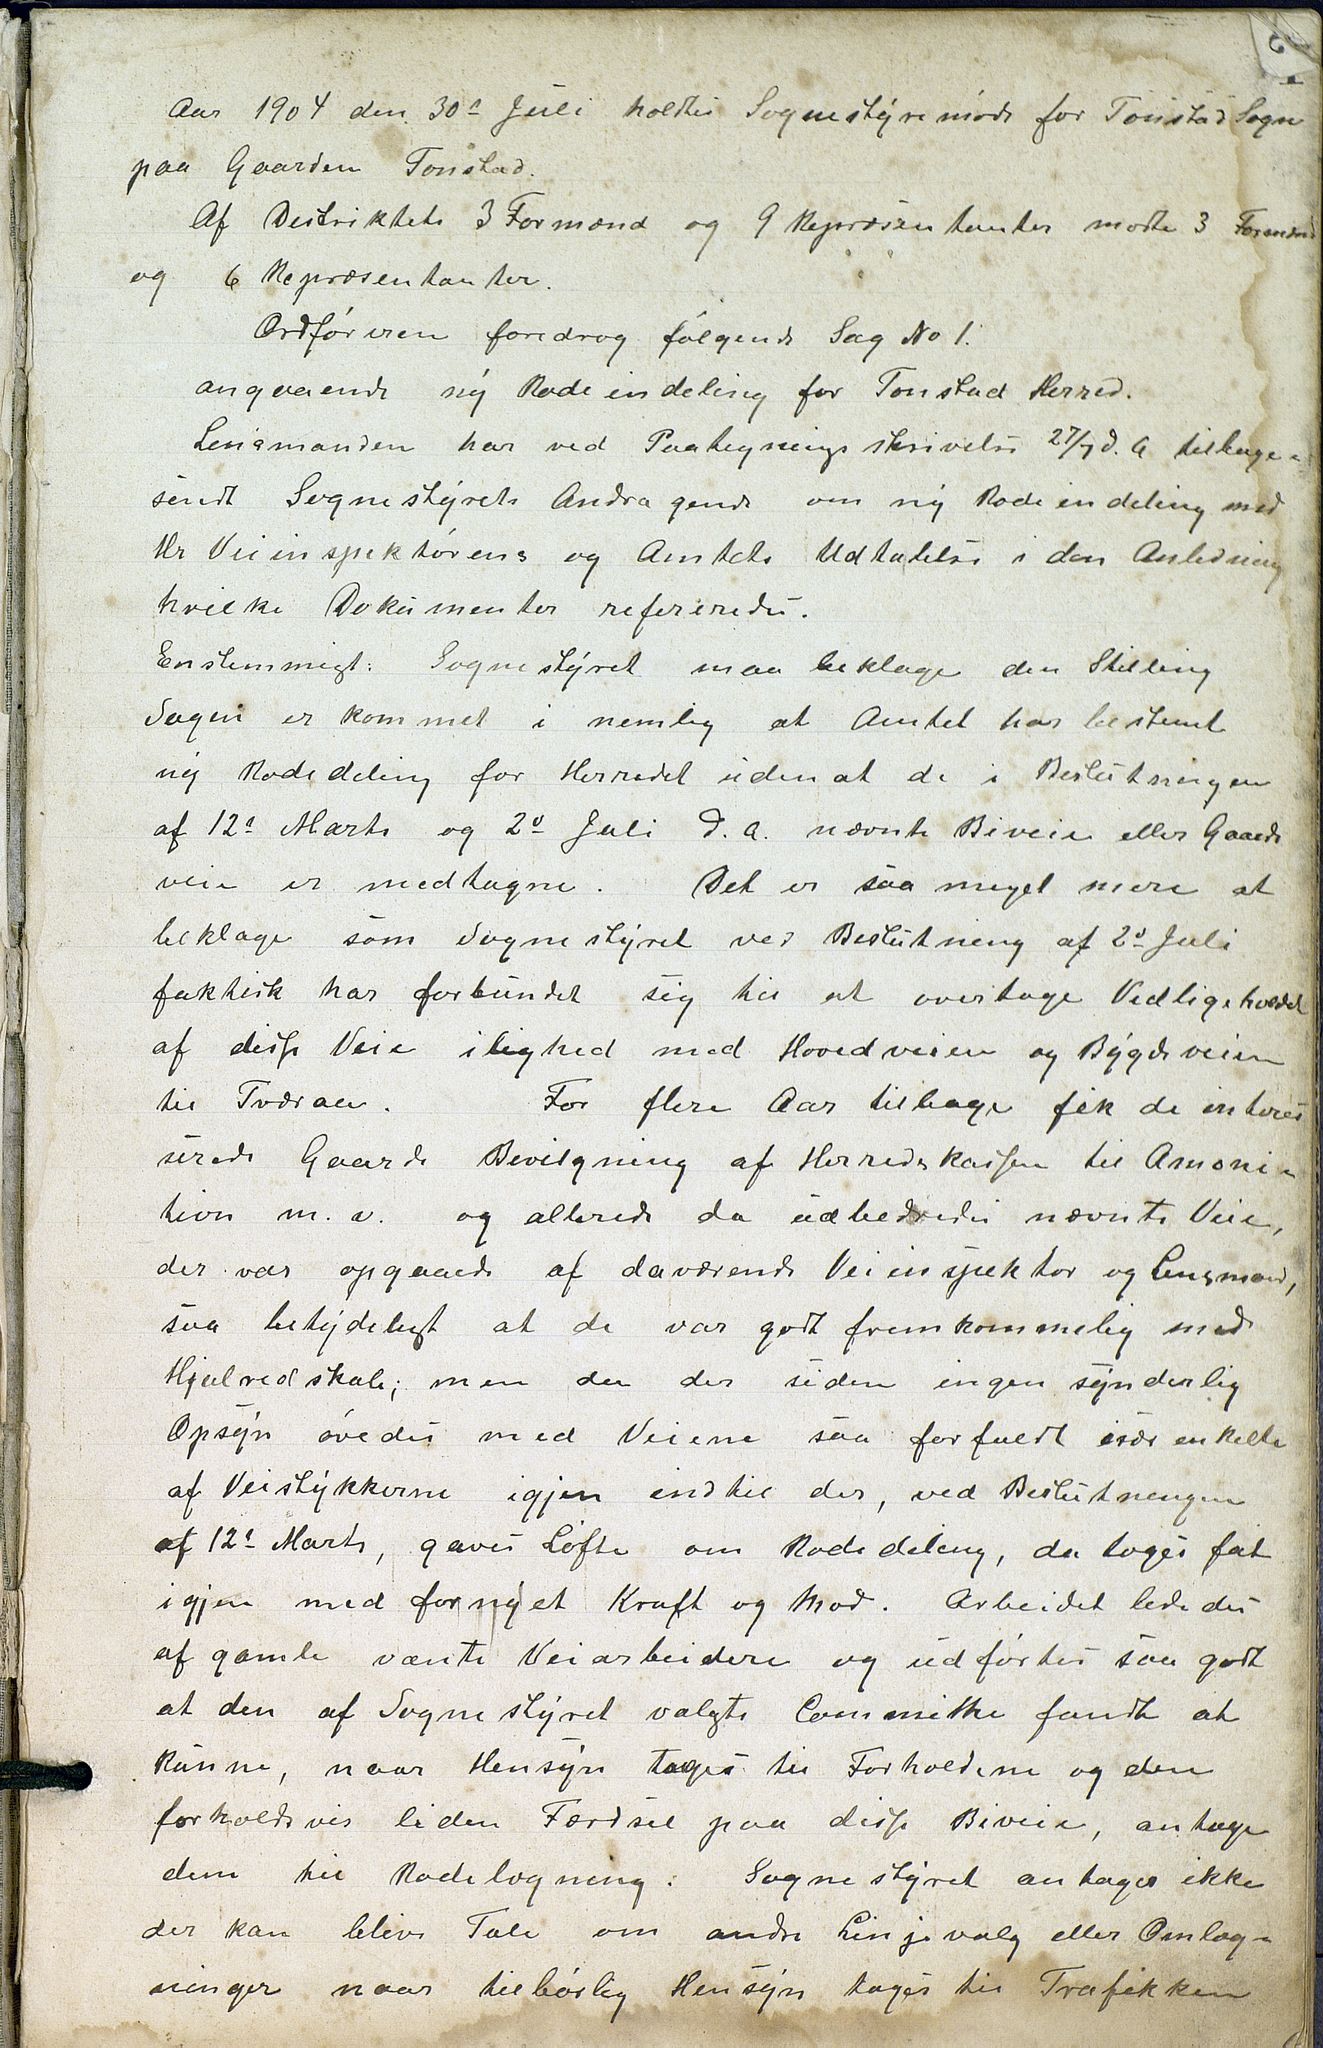 Aar 1904 den 30te Juli holdtes Sognestyremøde for Tonstad Sogn
paa Gaarden Tonstad.
Af Destriktets 3 Formænd og 9 Repræsentanter mødte 3 Formænd
og 6 Repræsentanter.
Ordføreren foredrog følgende Sag No 1.
angaaende ny Rodeindeling for Tonstad Herred.
Lensmanden har ved Paategnings skrivelse 27/7 d. a tilbage-
sendt Sognestyrets Andragende om ny Rodeindeling med
Hr Veiinspektørens og Amtets Udtalelse i den Anledning
hvilke Dokumenter refereredes.
Enstemmigt: Sognestyret maa beklage den Stilling
Sagen er kommet i nemlig at Amtet har bestemt
ny Rodedeling for Herredet uden at de i Beslutningen
af 12te Marts og 2den Juli d. a. nævnte Biveie eller Gaards
veie er medtagne. Det er saa meget mere at
beklage som Sognestyret ved Beslutning af 2den Juli
faktisk har forbundet sig til at overtage Vedligeholdet
af disse Veie ilighed med Hovedveien og Bygdeveien
til Tværaen. For flere Aar tilbage fik de interes
serede Gaarde Bevilgning af Herredskassen til Amoni-
tion m. v. og allerede da udbedredes nævnte Veie,
der var opgaaede af daværende Veiinspektør og Lensmand,
saa betydeligt at de var godt fremkommelig med
Hjulredskab; men da der siden ingen synderlig
Opsyn øvedes med Veiene saa forfaldt især enkelte
af Veistykkerne igjen indtil der, ved Beslutningen
af 12te Marts, gaves Løfte om Rodedeling, da toges fat
igjen med fornyet Kraft og Mod. Arbeidet lededes
af gamle vante Veiarbeidere og udførtes saa godt
at den af Sognestyret valgte Committe fandt at
kunne, naar Hensyn toges til Forholdene og den
forholdsvis liden Færdsel paa disse Biveie, antage
dem til Rodelægning. Sognestyret antager ikke
der kan blive Tale om andre Linjevalg eller Omlæg-
ninger naar tilbørlig Hensyn tages til Trafikken